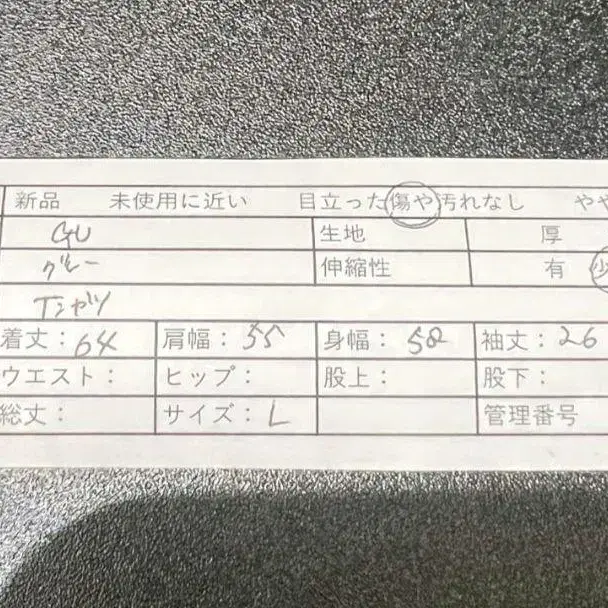 新品 未使用に近い 目立った傷や汚れなし やや
GU 生地 厚
グレー 伸縮性 有 少
Tシャツ
着丈：64 肩幅：55 身幅：58 袖丈：26
ウエスト： ヒップ： 股上： 股下：
総丈： サイズ：L 管理番号